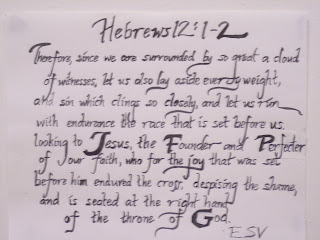 Hebrews 12:1-2
Therefore, since we are surrounded by so great a cloud
of witnesses, let us also lay aside every weight,
and sin which clings so closely, and let us run
with endurance the race that is set before us.
looking to Jesus, the Founder and Perfecter
of our faith, who for the joy that was set
before him endured the cross, despising the shame,
and is seated at the right hand
of the throne of God.
ESV